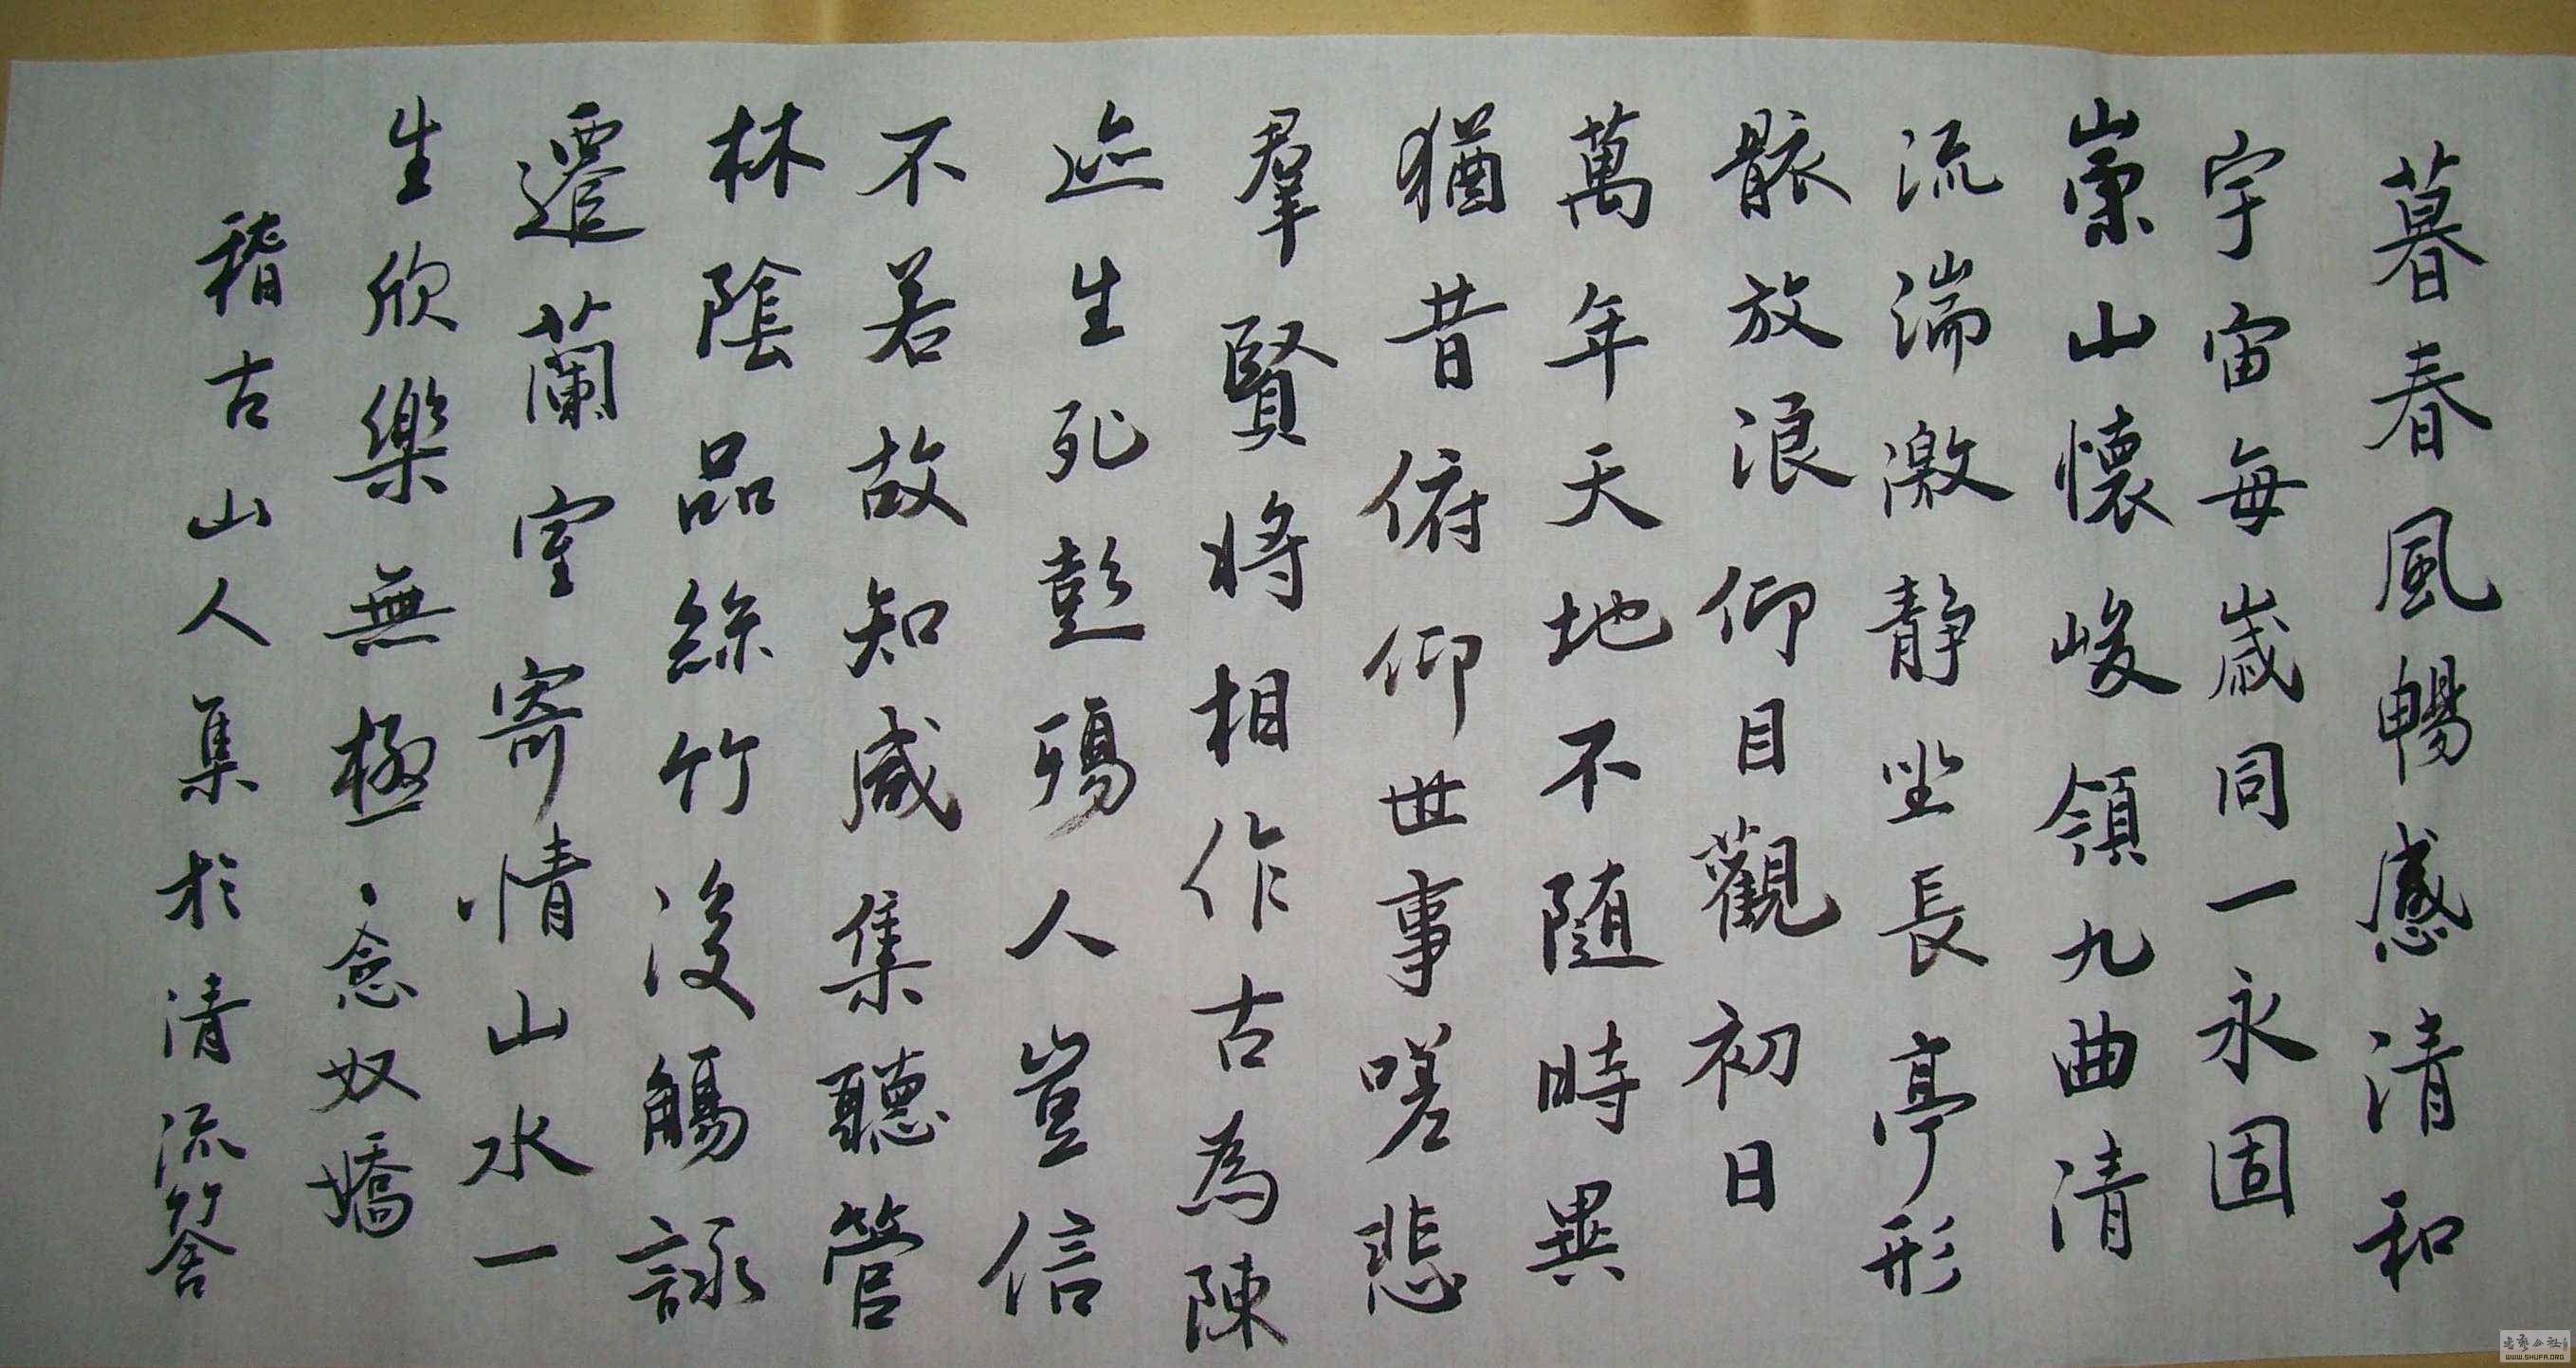 暮春風暢感清和
宇宙每歲同一永固
崇山懷峻領九曲清
流湍激静坐長亭形
骸放浪仰目觀初日
萬年天地不随時異
猶昔俯仰世事嗟悲
羣賢將相作古為陳
迹生死彭殤人豈信
不若故知咸集聽管
林陰品絲竹後觴詠
遷蘭室寄情山水一
生欣樂無極、念奴嬌
稽古山人集於清流
WWW.SHUFA.ORG